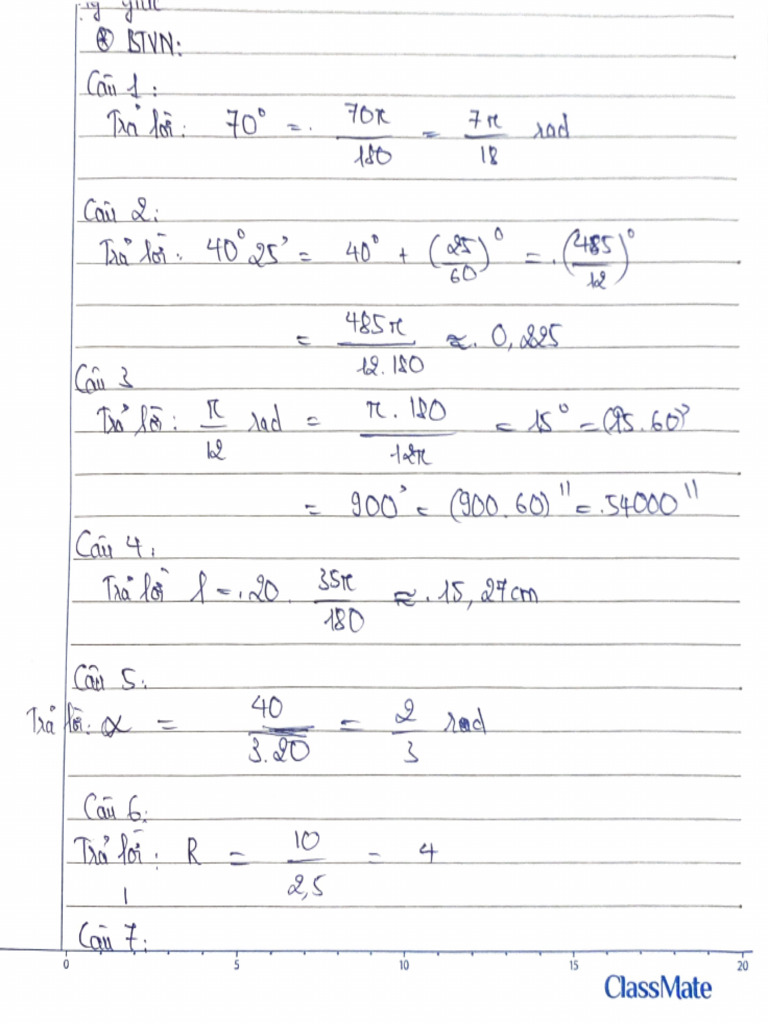 ⊛ BTVN:
Câu 1:
Trả lời: 70° = 70π/180 = 7π/18 rad
Câu 2:
Trả lời: 40°25' = 40° + (25/60)° = (485/12)°
= 485π/12.180 ≈ 0,225
Câu 3
Trả lời: π/12 rad = π.180/12π = 15° = (15.60)'
= 900' = (900.60)'' = 54000''
Câu 4:
Trả lời l = 20. 35π/180 ≈ 15,27cm
Câu 5:
Trả lời: α = 40/3.20 = 2/3 rad
Câu 6:
Trả lời: R = 10/2,5 = 4
Câu 7:
0 5 10 15 20
ClassMate